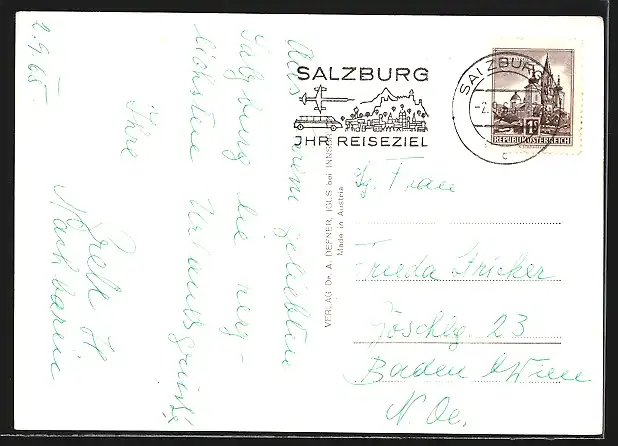 2.9.65.
Aus dem geliebten
Salzburg die herz-
lichsten Urlaubsgrüße
Ihre
Grete H.
Nachbarin
SALZBURG
JHR REISEZIEL
SALZBURG
-2.9.
c
1S
REPUBLIK ÖSTERREICH
VERLAG Dr. A. DEFNER, IGLS bei INNSBR
Made in Austria
Frau
Frieda Fricker
23
Baden b/Wien
N. Oe.